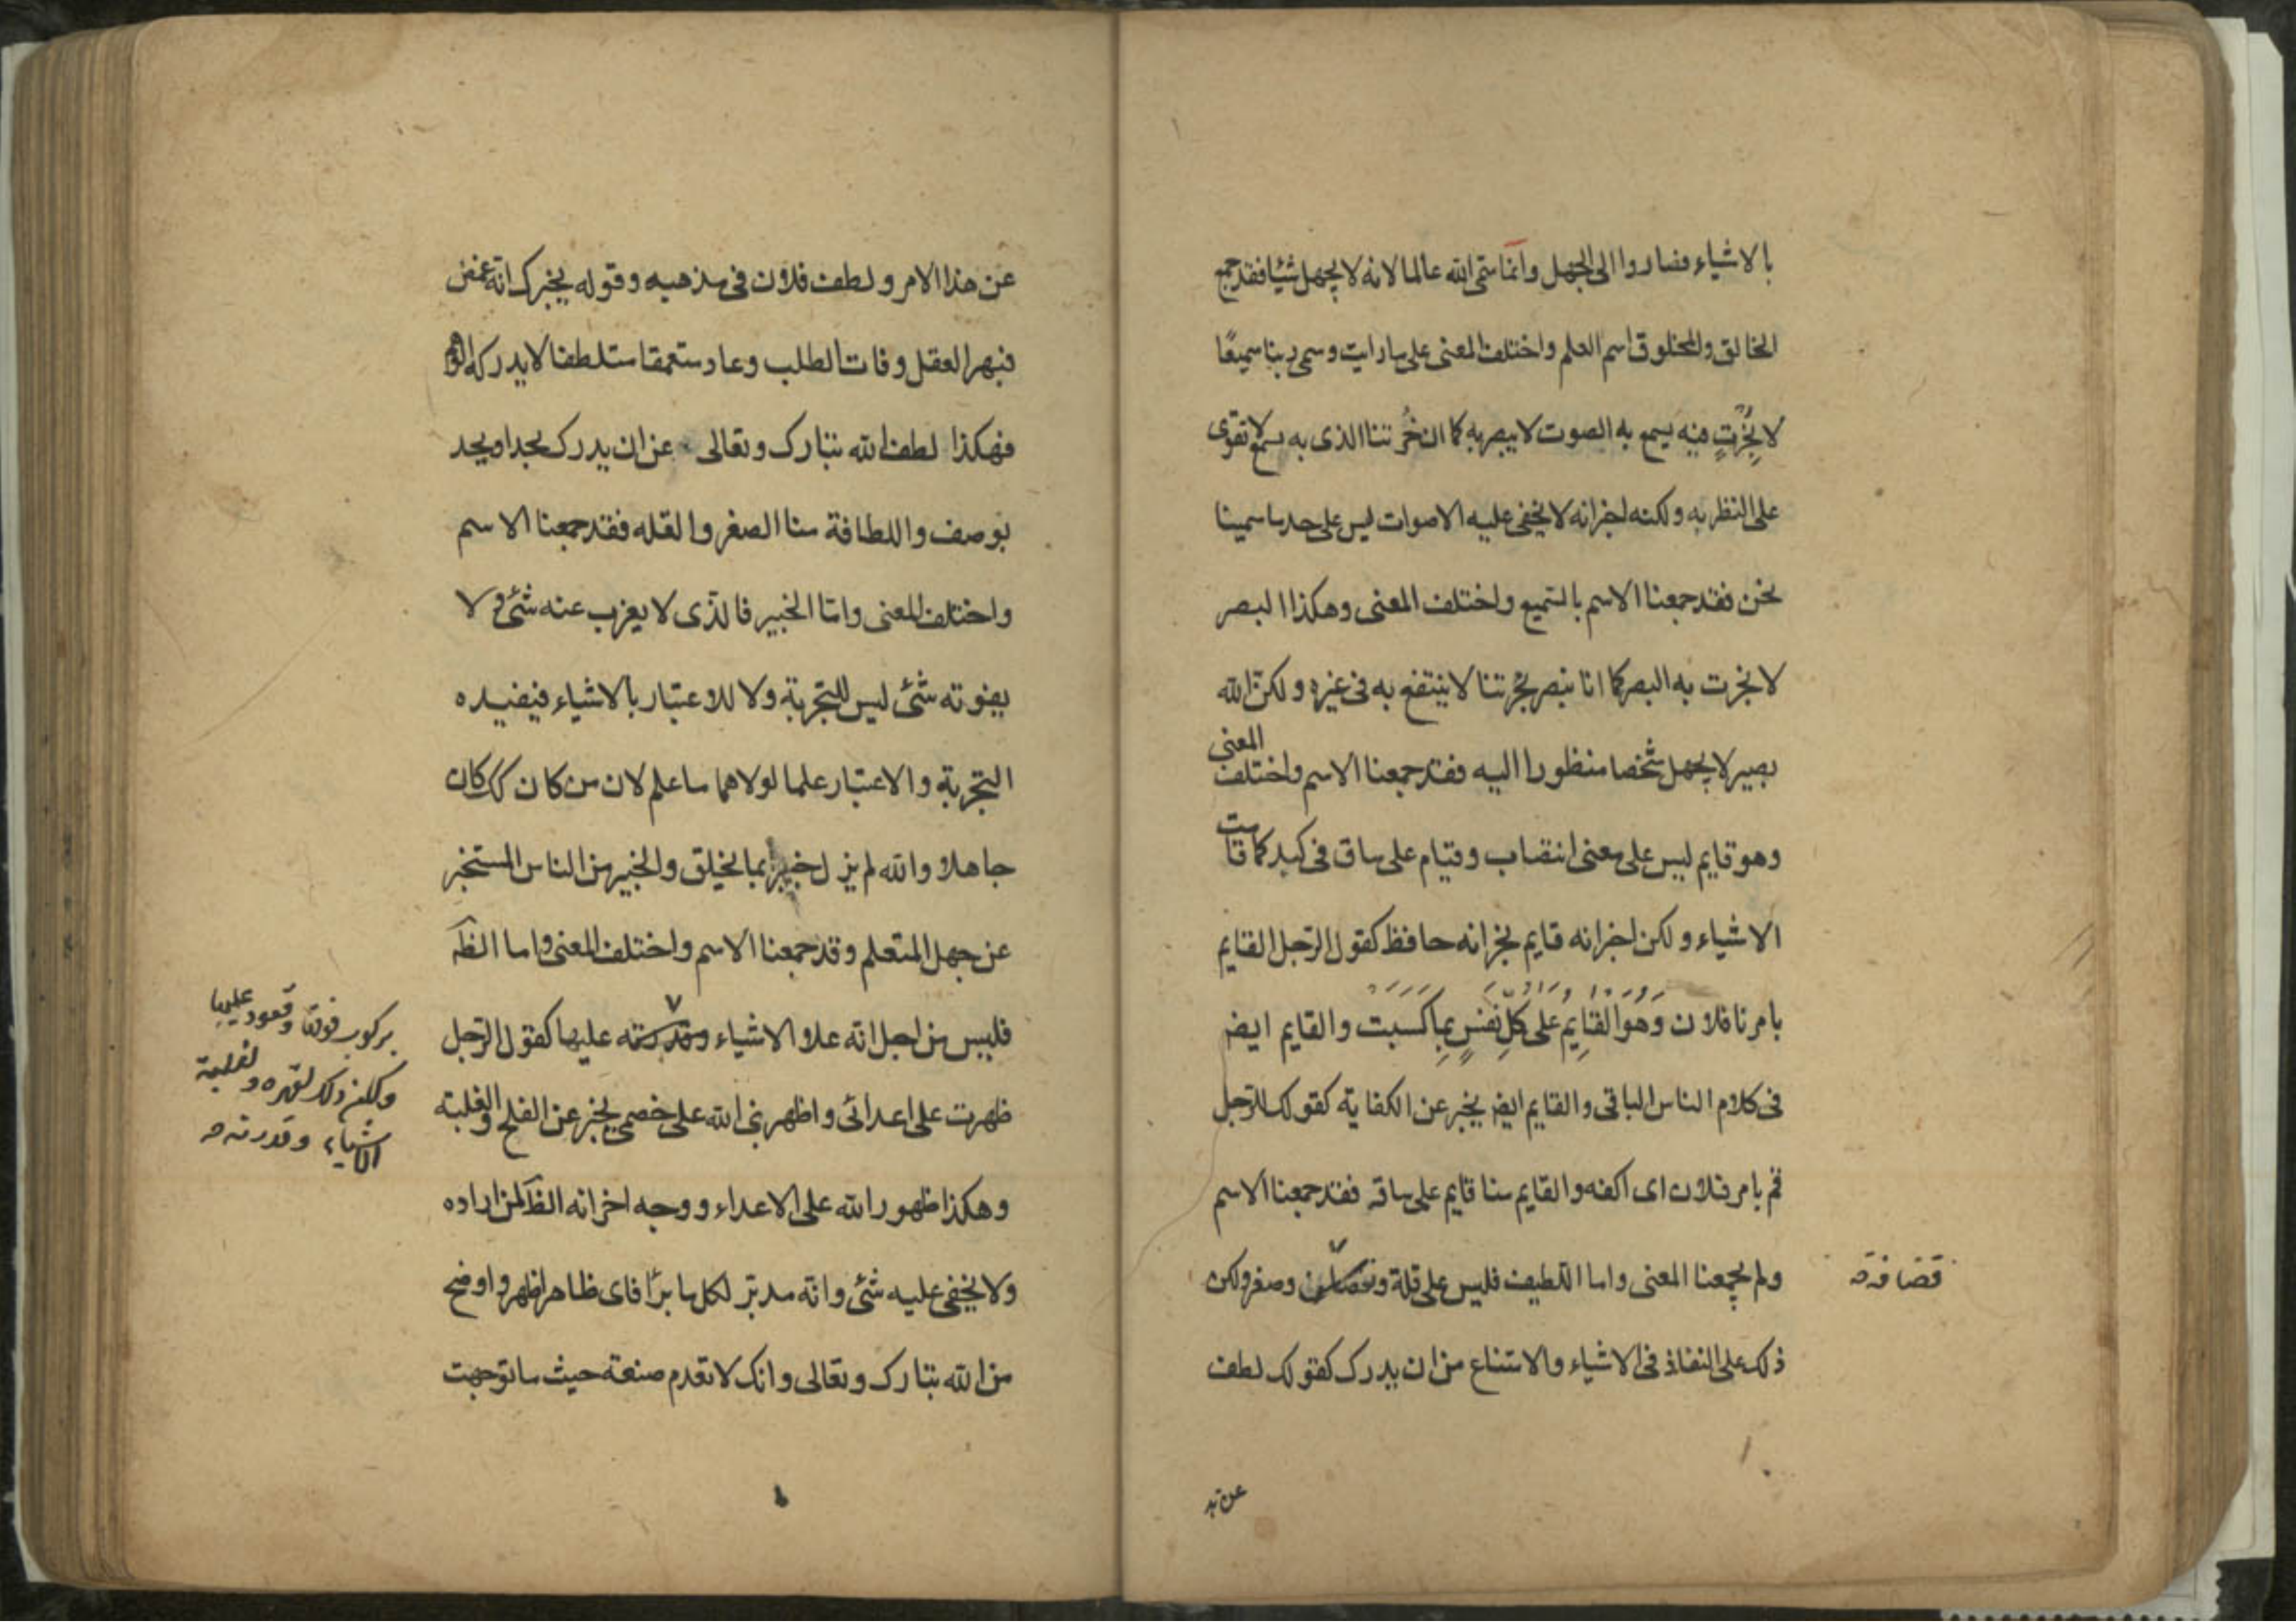 بالاشياء فصاروا الى الجهل وانما سمى الله عالما لانه لا يجهل شيئا فقد جمع
الخالق والمخلوق اسم العلم واختلف المعنى على ما رايت وسمى ربنا سميعًا
لا بِخُرْتٍ فيه يسمع به الصوت لا يبصر به كما ان خُرتنا الذى به يسمع لا تقوى
على النظر به ولكنه اخبر انه لا يخفى عليه الاصوات ليس على حد ما سمينا
نحن فقد جمعنا الاسم بالسميع واختلف المعنى وهكذا البصر
لا بخرت به البصر كما انا نبصر بخرتنا لا ينتفع به فى غيره ولكن الله
بصير لا يجهل شخصا منظورا اليه فقد جمعنا الاسم واختلف المعنى
وهو قايم ليس على معنى انتصاب وقيام على ساق فى كبد كما قامت
الاشياء ولكن اخبر انه قايم يخبر انه حافظ كقول الرجل القايم
بامرنا فلان وَهُوَ القَايِمُ عَلى كُلِّ نَفْسٍ بِمَا كَسَبَت والقايم ايض
فى كلام الناس الباقى والقايم ايض يخبر عن الكفاية كقولك للرجل
قم بامر فلان اى اكفه والقايم منا قايم على ساقه فقد جمعنا الاسم
ولم يجمعنا المعنى واما اللطيف فليس على قلة و وصغر ولكن
قضافة
ذلك على النفاذ فى الاشياء والامتناع من ان يدرك كقولك لطف
عن هذا الامر ولطف فلان فى مذهبه وقوله يخبرك انه غمض
فبهر العقل وفات الطلب وعاد متعمقا متلطفا لا يدركه الوهم
فهكذا لطف الله تبارك وتعالى عن ان يدرك بحد او يحد
بوصف واللطافة منا الصغر والقله فقد جمعنا الاسم
واختلف المعنى واما الخبير فالذى لا يعزب عنه شئ و لا
يفوته شئ ليس للتجربة ولا للاعتبار بالاشياء فيفيده
التجربة والاعتبار علما لولاهما ما علم لان من كان كك كان
جاهلا والله لم يزل خبيرا بما يخلق والخبير من الناس المستخبر
عن جهل المتعلم وقد جمعنا الاسم واختلف المعنى واما الظه
فليس من اجل انه علا الاشياء عليها كقول الرجل
بركوب فوقها وقعود عليها
ولكن ذلك لقهره ولغلبة
الاشياء وقدرته
ظهرت على اعدائى واظهرنى الله على خصمى يخبر عن الفلح والغلبته
وهكذا ظهور الله على الاعداء ووجه اخر انه الظه لمن اراده
ولا يخفى عليه شئ وانه مدبر لكل ما برا فاى ظاهر اظهر واوضح
من الله تبارك وتعالى وانك لا تعدم صنعة حيث ما توجهت